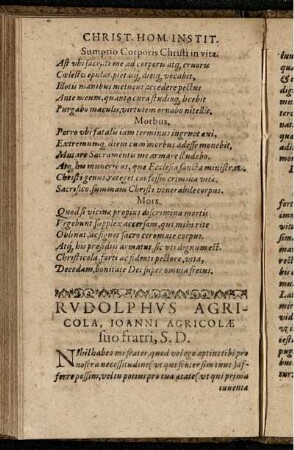 CHRIST. HOM. INSTIT.
Sumptio Corporis Christi in vita.
Ast vbi sacr me ad corporis atq; cruoris
Cœlestes epulas, pietasq; diesq; vocabit,
Illotis manibus metuens accedere pectus
Ante meum, quanta cura studioq; licebit
Purgabo maculis, virtutem ornabo nitellis.
Morbus.
Porro vbi fatalis iam terminus ingruet æui,
Extremumq; diem cum morbus adesse monebit,
Mature Sacramentis me armare studebo,
Atq; his muneribus, quæ Ecclesia sancta ministrat
Christi genus, reteget confessio crimina vitæ
Sacrifico, summam Christi venerabile corpus.
Mors.
Quod si vicinæ propius discrimina mortis
Vrgebunt supplex accersam, qui mihi rite
Oblinat, ac signet sacro ceromate corpus.
Atq; his præsidijs armatus, sic vti dignum est
Christicola, forti ac fidenti pectore, vita,
Decedam, bonitate Dei super omnia fretus.
RVDOLPHVS AGRI-
COLA, IOANNI AGRICOLÆ
suo fratri, S. D.
Nihil habeo mi frater, quod vel ego aptius tibi pro
nostra necessitudine (vt qui frater sim tuus) af-
ferre possim, vel tu potius pro tua ætate (vt qui prima
iuuenta